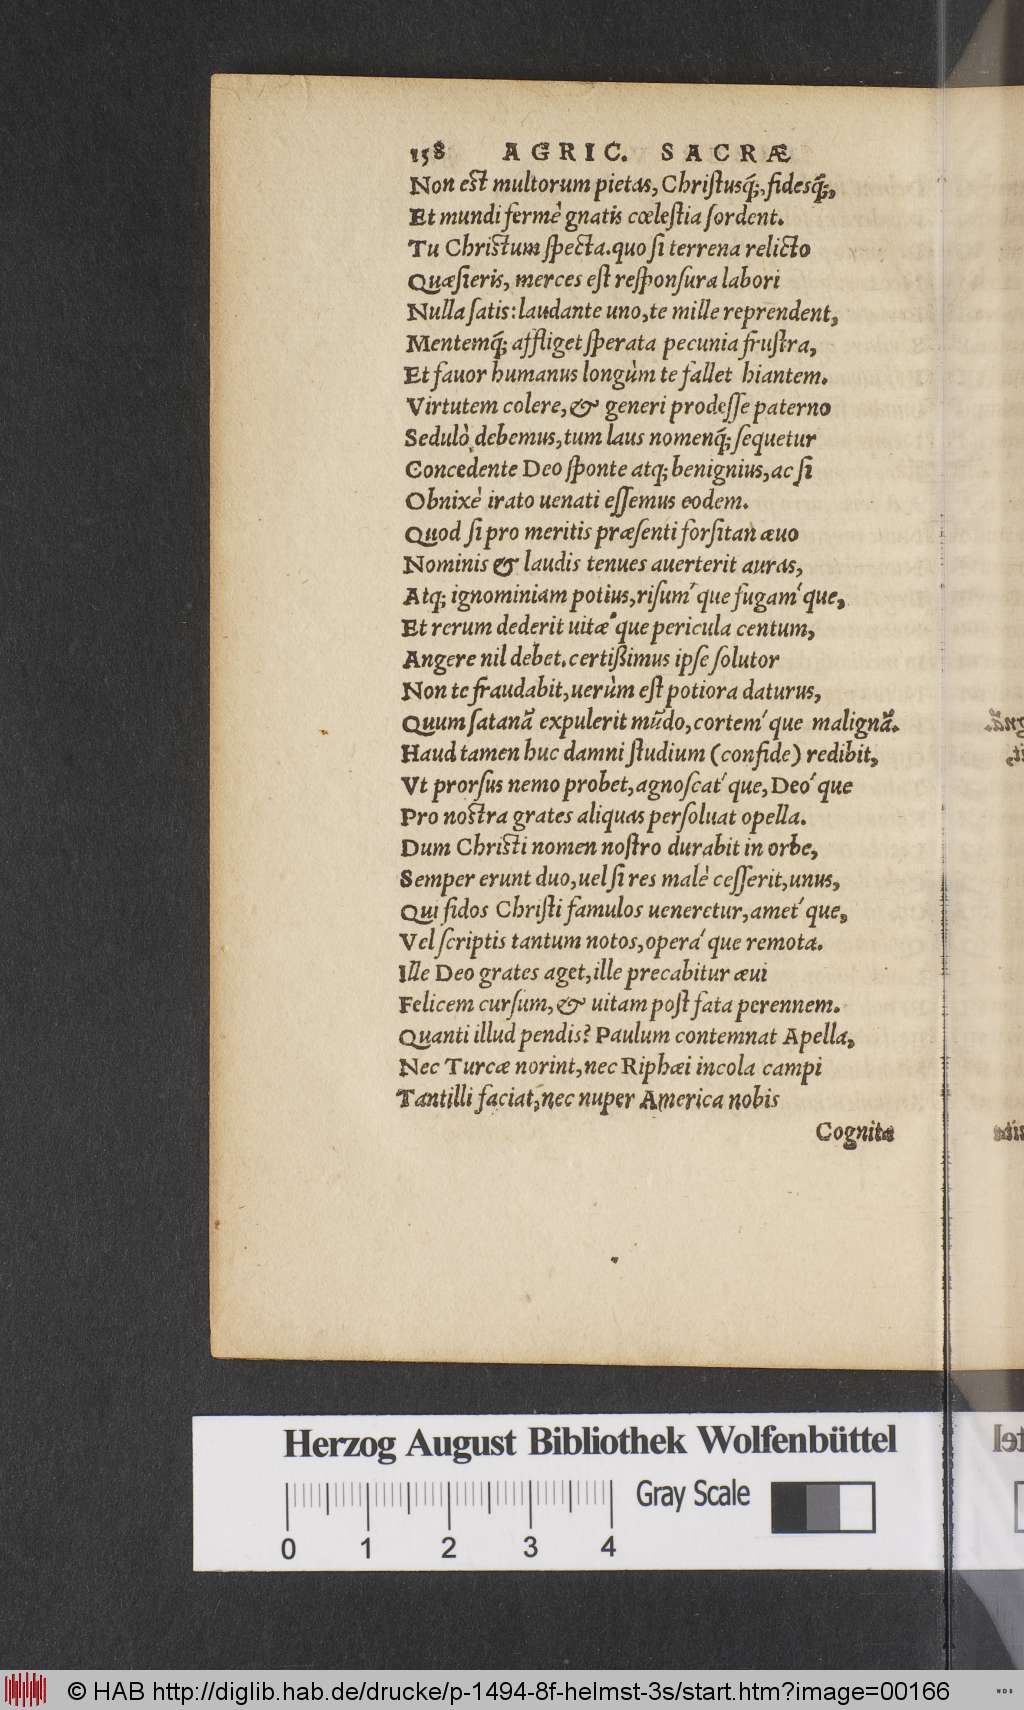 158 AGRIC. SACRÆ
Non est multorum pietas, Christusq́;, fidesq́;,
Et mundi fermè gnatis cœlestia sordent.
Tu Christum specta. quo si terrena relicto
Quæsieris, merces est responsura labori
Nulla satis: laudante uno, te mille reprendent,
Mentemq́; affliget sperata pecunia frustra,
Et fauor humanus longùm te fallet hiantem.
Virtutem colere, & generi prodesse paterno
Sedulò debemus, tum laus nomenq́; sequetur
Concedente Deo sponte atq; benignius, ac si
Obnixè irato uenati essemus eodem.
Quod si pro meritis præsenti forsitan æuo
Nominis & laudis tenues auerterit auras,
Atq; ignominiam potius, risum´que fugam´que,
Et rerum dederit uitæ´que pericula centum,
Angere nil debet. certißimus ipse solutor
Non te fraudabit, uerùm est potiora daturus,
Quum satanã expulerit mũdo, cortem´que malignã.
Haud tamen huc damni studium (confide) redibit,
Vt prorsus nemo probet, agnoscat´que, Deo´que
Pro nostra grates aliquas persoluat opella.
Dum Christi nomen nostro durabit in orbe,
Semper erunt duo, uel si res malè cesserit, unus,
Qui fidos Christi famulos ueneretur, amet´que,
Vel scriptis tantum notos, opera´que remota.
Ille Deo grates aget, ille precabitur æui
Felicem cursum, & uitam post fata perennem.
Quanti illud pendis? Paulum contemnat Apella,
Nec Turcæ norint, nec Riphæi incola campi
Tantilli faciat, nec nuper America nobis
Cognita
Herzog August Bibliothek Wolfenbüttel
Gray Scale
0 1 2 3 4
© HAB http://diglib.hab.de/drucke/p-1494-8f-helmst-3s/start.htm?image=00166